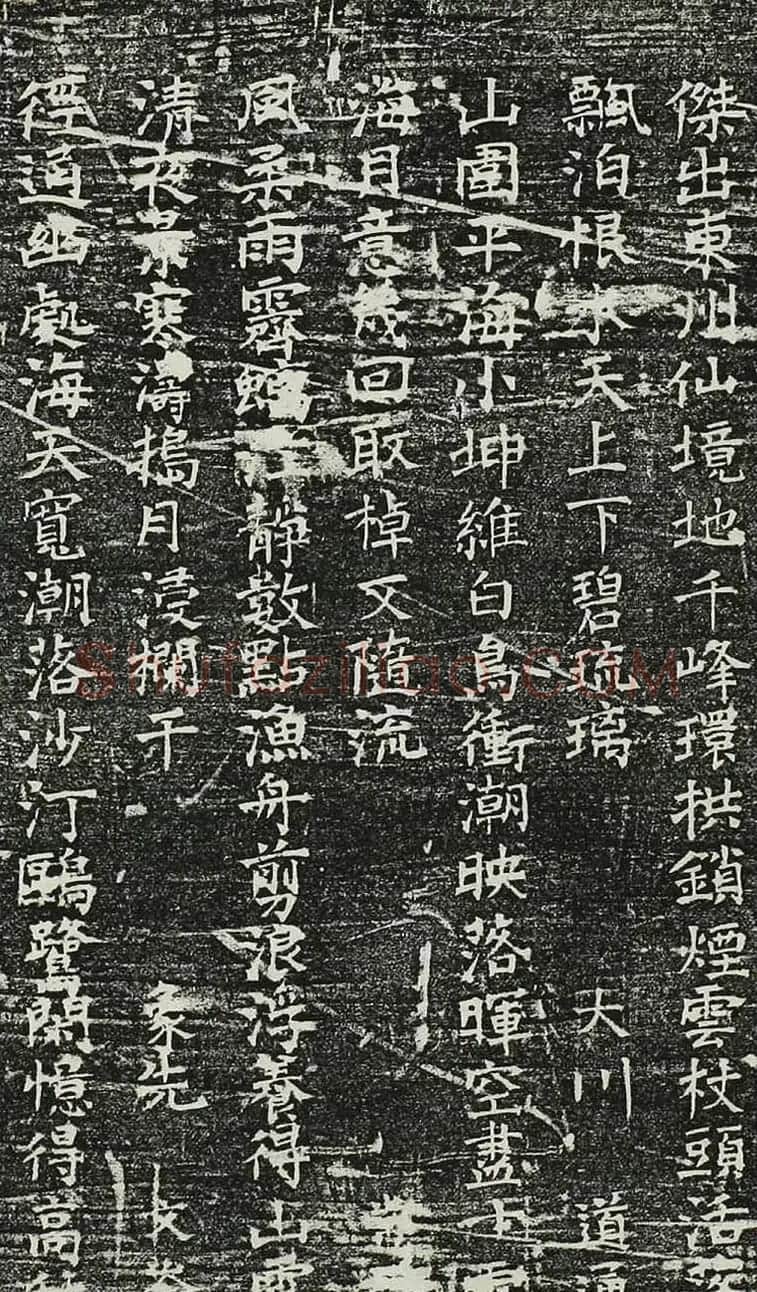 傑出東州仙境地千峰環拱鎖煙雲杖頭活
飄泊根 天上下碧琉璃 天川 道
山圍平海小坤維白鳥衝潮映落暉空盡
海月意 回取棹又隨流
風柔雨霽 江靜數點漁舟剪浪浮養得山
清夜景寒濤搗月浸攔干 象先
徑過幽處海天寬潮落沙汀鷗鷺閑憶得高
Shufaziliao.COM